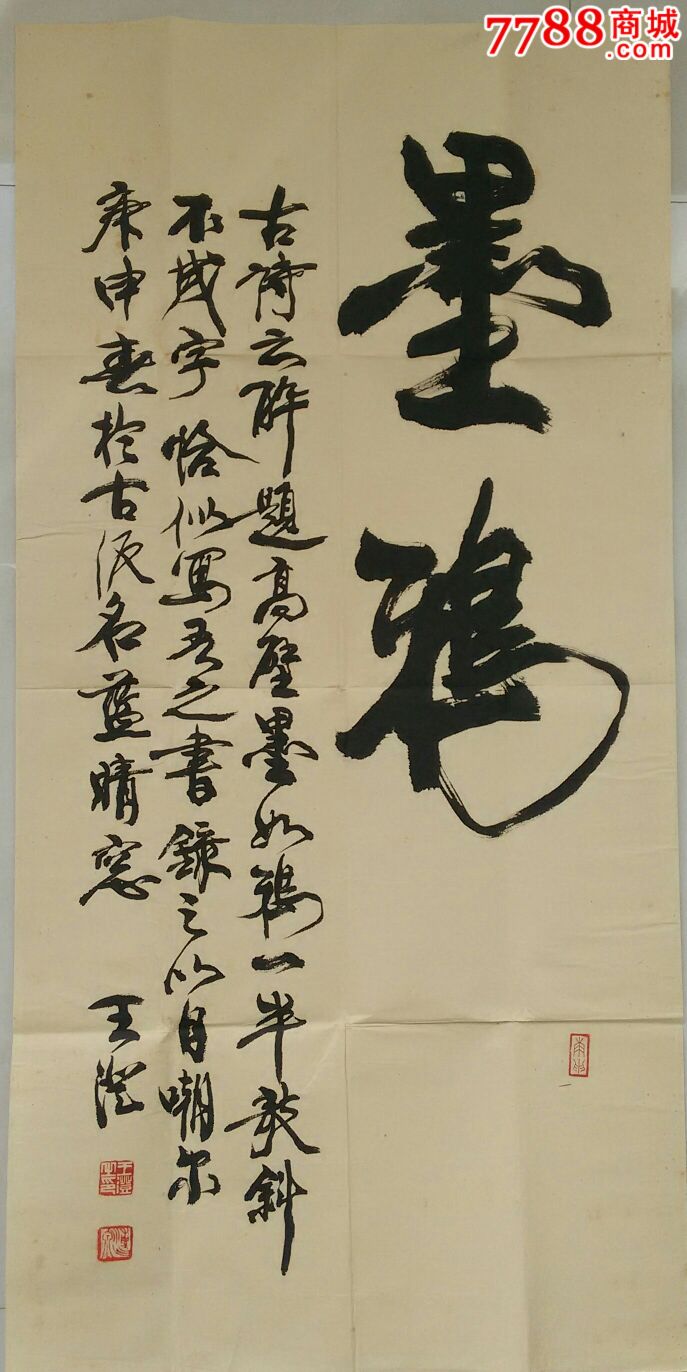 7788商城
.com
墨鴉
古詩云醉題高壁墨如鴉一半欹斜
不成字恰似寫吾之書錄之以自嘲尔
庚申春於古汳名蓝晴窓
王澄